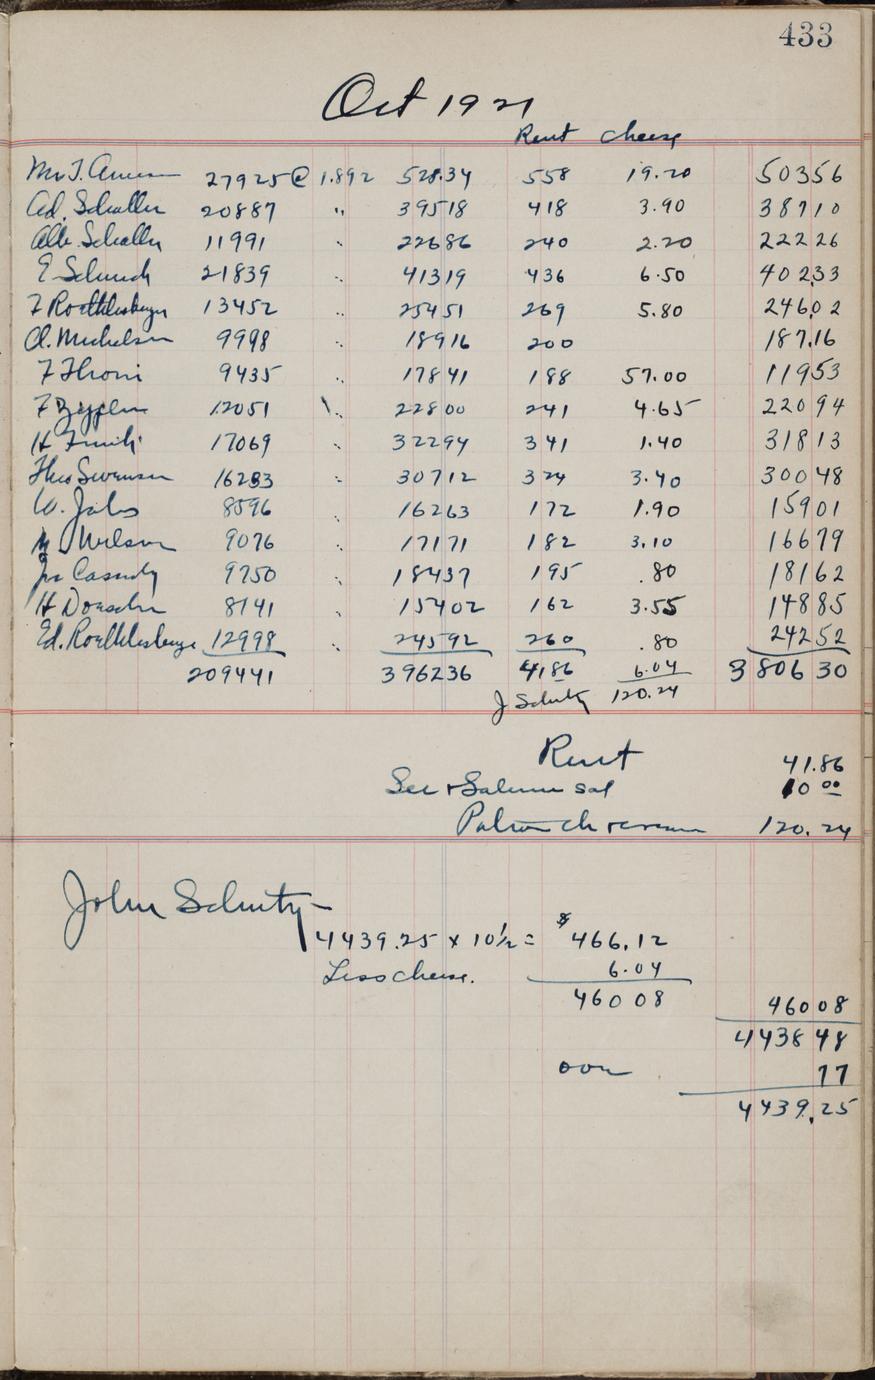 433
Oct 1921
Rent cheese
Mr T. 27925 @ 1.892 528.34 558 19.20 50356
Ad. Schaller 20887 " 39518 418 3.90 38710
Alb. Schaller 11991 " 22686 240 2.20 22226
E 21839 " 41319 436 6.50 40233
F Roethlisberger 13452 " 25451 269 5.80 246.02
A. Michelson 9998 " 18916 200 187.16
F Throni 9435 " 17841 188 57.00 11953
F Zypen 12051 " 22800 241 4.65 22094
H 17069 " 32294 341 1.40 31813
Theo Swenson 16233 " 30712 324 3.40 30048
W. 8596 " 16263 172 1.90 15901
Wilson 9076 " 17171 182 3.10 16679
Jn Cassidy 9750 " 18437 195 .80 18162
H 8141 " 15402 162 3.55 14885
Ed. Roethlisberge 12998 " 24592 260 .80 24252
209441 396236 4186 6.04 380630
J Schutz 120.24
Rent 41.86
Sec + Salesm sal 10 00
Patron ch 120.24
John Schutz
4439.25 x 10½ = $466.12
Less cheese. 6.04
46008 46008
443848
over 77
4439.25